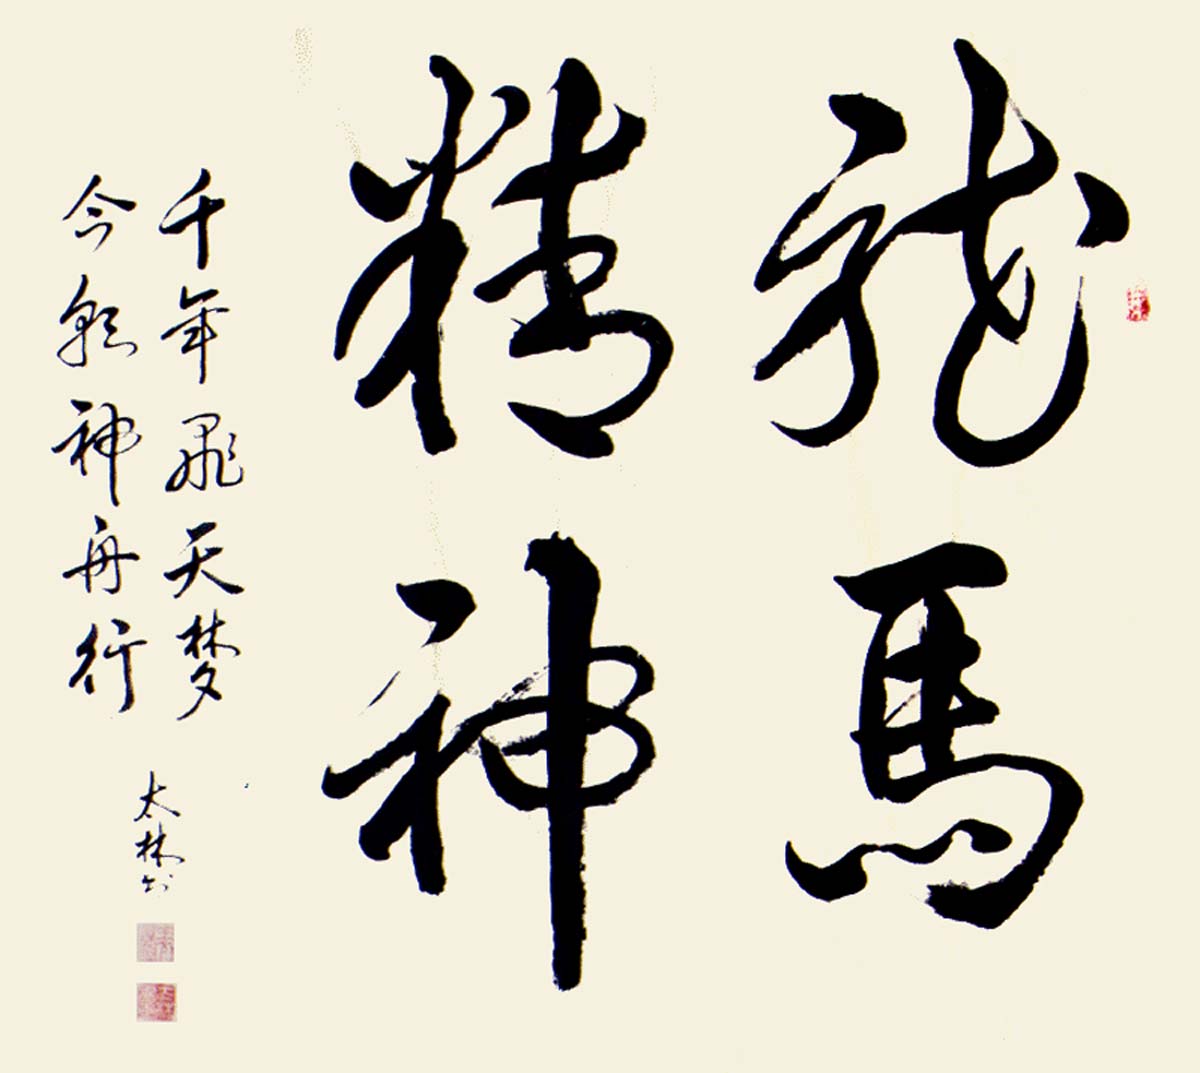 龍馬
精神
千年飛天梦
今朝神舟行
太林书